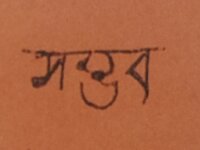 সম্ভব